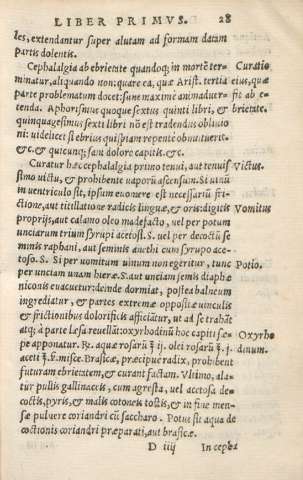 LIBER PRIMVS. 28
les, extendantur super alutam ad formam datam
partis dolentis.
Cephalalgia ab ebrietate quandoq; in mortē ter- Curatio
minatur, aliquando non: quare ea, quæ Arist. tertia eius, quæ
parte problematum docet: sunt maximè animaduer- fit ab e-
tenda. Aphorismus quoque sextus quinti libri, & brietate.
quinquagesimus sexti libri nō est tradendus obliuio
ni: uidelicet si ebrius quispiam repentè obmutuerit
&c. & quicunq; sani dolore capitis.&c.
Curatur hæc cephalalgia primo tenui, aut tenuis Victus.
simo victu, & prohibente vaporū ascensum. Si uinū
in uentriculo sit, ipsum euomere est necessariū fri-
ctione, aut titillatione radicis linguæ, & oris: digitis Vomitus
proprijs, aut calamo oleo madefacto, uel per potum
unciarum trium syrupi acetosi. S. uel per decoctū se
minis raphani, aut seminis anethi cum syrupo ace-
toso. S. Si per uomitum uinum non egeritur, tunc Potio.
per unciam unam hieræ. S. aut unciam semis diaphœ
niconis euacuetur: deinde dormiat, postea balneum
ingrediatur, & partes extremæ oppositæ uinculis
& frictionibus dolorificis afficiātur, ut ad se trahāt
atq; à parte læsa reuellāt: oxyrhodinū hoc capiti sæ- Oxyrho
pe apponatur. ℞. aquæ rosarū ℥ ij. olei rosarū ℥. j. dinum.
aceti ℥.s. misce. Brasicæ, præcipuè radix, prohibent
futuram ebrietatem, & curant factam. Vltimo, ala-
tur pullis gallinaceis, cum agresta, uel acetosa de-
coctis, pyris, & malis cotoneis tostis, & in fine men-
sæ puluere coriandri cū saccharo. Potus sit aqua de
coctionis coriandri præparati, aut brasicæ.
D iiij In cepha